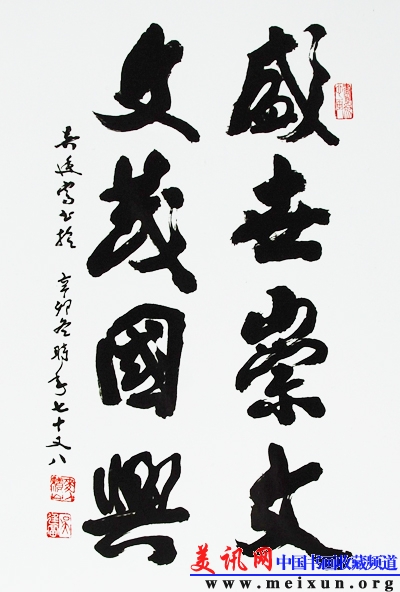 盛世崇文
文茂國興
书於 辛卯冬時年七十又八
美讯网 中国书画收藏频道
www.meixun.org